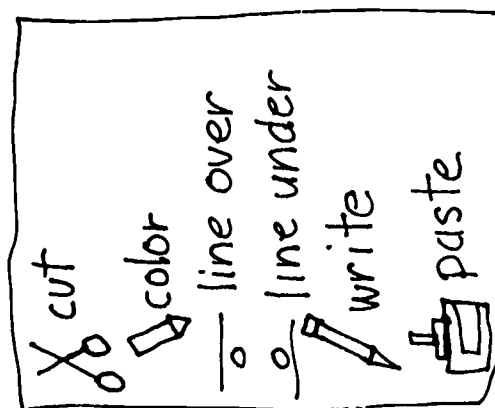 cut
color
line over
line under
write
paste